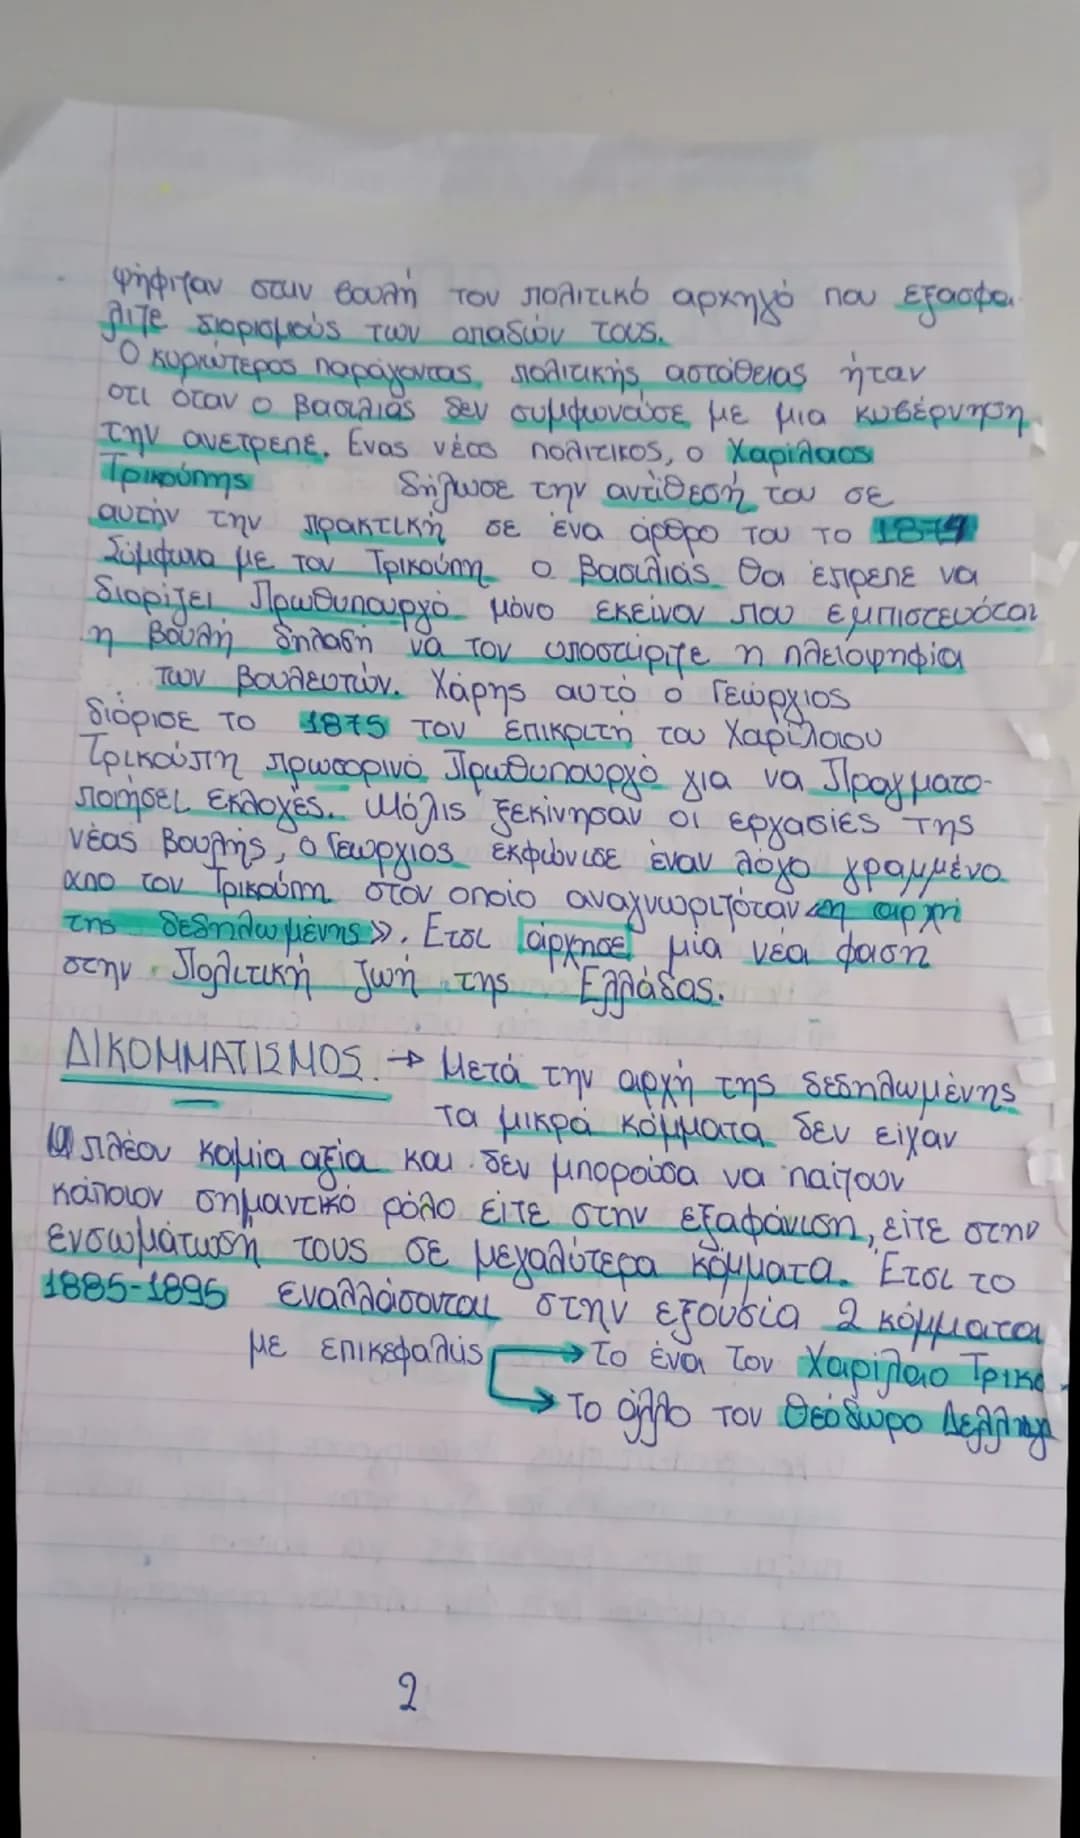 ψήφιζαν στην βουλή τον πολιτικό αρχηγό που εξασφα
λιζε διορισμούς των οπαδών τους.
Ο κυριώτερος παράγοντας πολιτικής αστάθειας ήταν
οτι όταν ο βασιλιάς δεν συμφωνούσε με μια κυβέρνηση
την ανέτρεπε. Ένας νέος πολιτικος, ο Χαρίλαος
Τρικούπης δήλωσε την αντίθεσή του σε
αυτήν την πρακτική σε ένα άρθρο του το 1874
Σύμφωνα με τον Τρικούπη ο βασιλιάς θα έπρεπε να
διορίζει Πρωθυπουργό μόνο εκείνον που εμπιστευόται
η βουλή δηλαδή να τον υποστιρίζε η πλειοψηφία
των βουλευτών. Χάρης αυτό ο Γεώργιος
διόρισε το 1875 τον επικριτή του Χαρίλαου
Τρικούπη πρωσορινό Πρωθυπουργό για να Πραγματο-
ποιήσει εκλογές. Μόλις ξεκίνησαν οι εργασίες της
νέας βουλής, ο Γεώργιος εκφώνισε έναν λόγο γραμμένο
απο τον Τρικούπη στον οποίο αναγνωριζόταν «η αρχή
της δεδηλωμένης». Έτσι άρχησε μία νέα φαση
στην Πολιτική ζωή της Ελλάδας.
ΔΙΚΟΜΜΑΤΙΣΜΟΣ. → Μετά την αρχή της δεδηλωμένης
τα μικρά κόμματα δεν είχαν
πλέον καμία αξία και δεν μπορούσα να παίζουν
κάποιον σημαντικό ρόλο είτε στην εξαφάνιση, είτε στην
ενσωμάτωση τους σε μεγαλύτερα κόμματα. Έτσι το
1885-1895 εναλλάσονται στην εξουσία 2 κόμματα
με επικεφαλύς → το ένα τον Χαρίλαο Τρικο
→ το άλλο τον Θεόδωρο Δελληγ
2